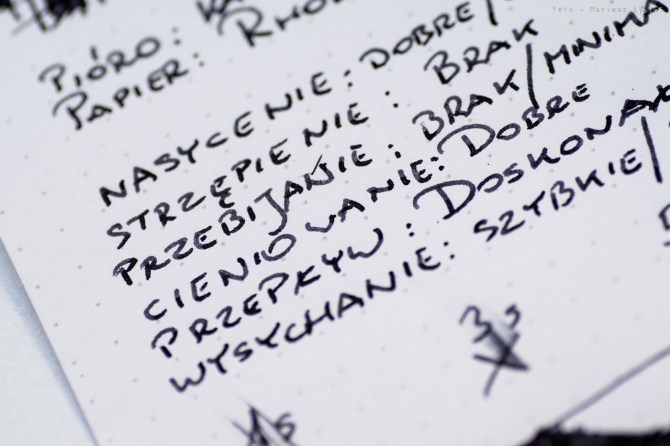 PIÓRO:
PAPIER: RHO
NASYCENIE: DOBRE/
STRZĘPIENIE: BRAK
PRZEBIJANIE: BRAK/MINIMA
CIENIOWANIE: DOBRE
PRZEPŁYW: DOSKONAŁ
WYSYCHANIE: SZYBKIE/
3s
1s